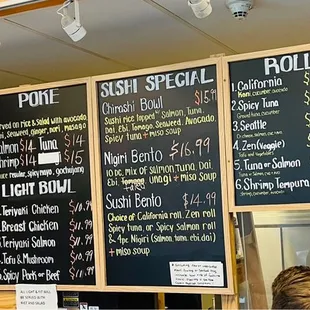 POKE
Served on rice & salad with avocado,
Seaweed, ginger, pori, masago
Salmon $14 Tuna $14
Shrimp $14 $15
regular, spicy mayo, gochujang
LIGHT BOWL
Teriyaki Chicken $10.99
Breast Chicken $11.99
Teriyaki Salmon $11.99
Tofu & Mushroom $10.99
Spicy Pork or Beef $11.99
SUSHI SPECIAL
Chirashi Bowl $15.99
Sushi rice topped w/ Salmon, Tuna,
Dai, Ebi, Tamago, Seaweed, Avocado,
Spicy tuna + miso Soup
Nigiri Bento $16.99
10 pc. mix of Salmon, Tuna, Dai
Ebi, Tamago, Unagi + miso Soup
Sushi Bento $14.99
Choice of California roll, Zen roll
Spicy Tuna, or Spicy Salmon roll
& 4pc Nigiri (Salmon, tuna, ebi, dai)
+ miso Soup
ROLL
1. California
Krab, cucumber, Avocado
2. Spicy Tuna
3. Seattle
Salmon, Avocado, Cucumber
4. Zen (Veggie)
Tofu and Vegetables
5. Tuna or Salmon
6. Shrimp Tempura